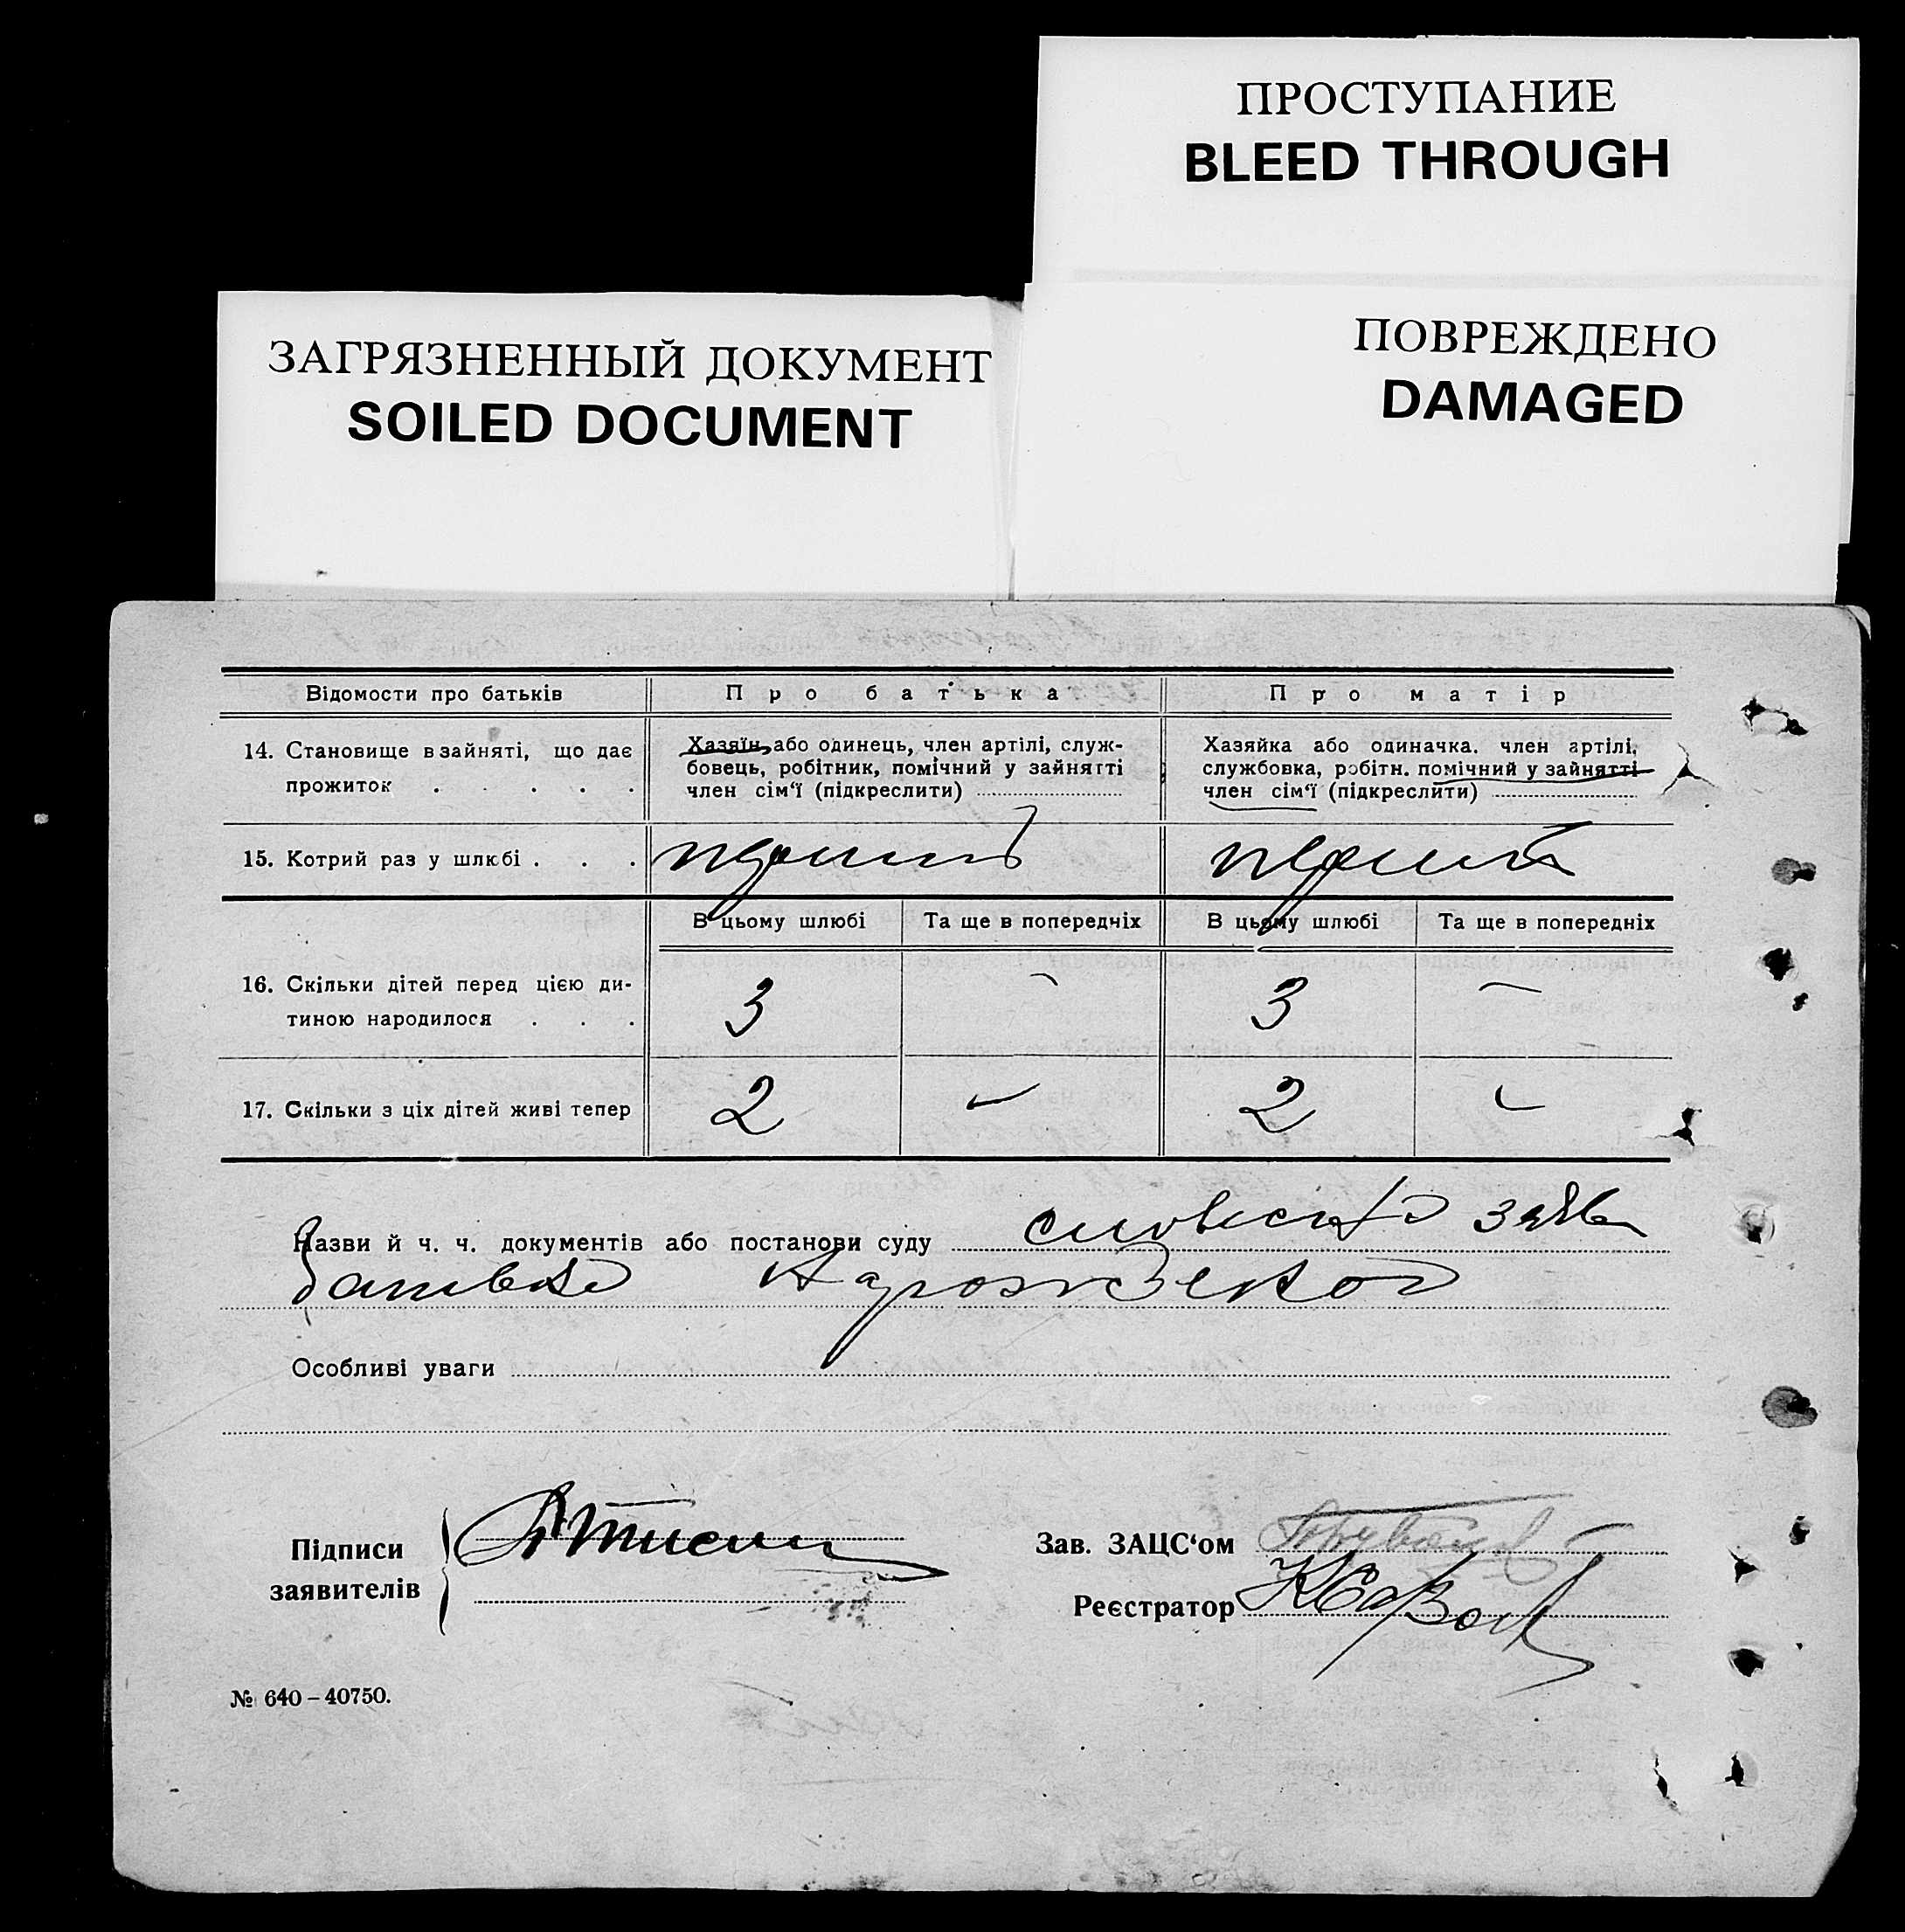 ПРОСТУПАНИЕ
BLEED THROUGH
ЗАГРЯЗНЕННЫЙ ДОКУМЕНТ
SOILED DOCUMENT
ПОВРЕЖДЕНО
DAMAGED
Відомости про батьків
Про батька
Про матір
14. Становище в зайняті, що дає
прожиток . . . . .
Хазяїн, або одинець, член артілі, служ-
бовець, робітник, помічний у зайнятті
член сім‘ї (підкреслити)
Хазяйка або одиначка. член артілі,
службовка, робітн. помічний у зайнятті
член сім‘ї (підкреслити)
15. Котрий раз у шлюбі . . .
перший
перший
В цьому шлюбі
Та ще в попередніх
В цьому шлюбі
Та ще в попередніх
16. Скільки дітей перед цією ди-
тиною народилося . . .
3
–
3
–
17. Скільки з ціх дітей живі тепер
2
–
2
–
Назви й ч. ч. документів або постанови суду словесна заява
батька
Особливі уваги
Підписи
заявителів
Зав. ЗАЦС‘ом
Реєстратор
№ 640 – 40750.